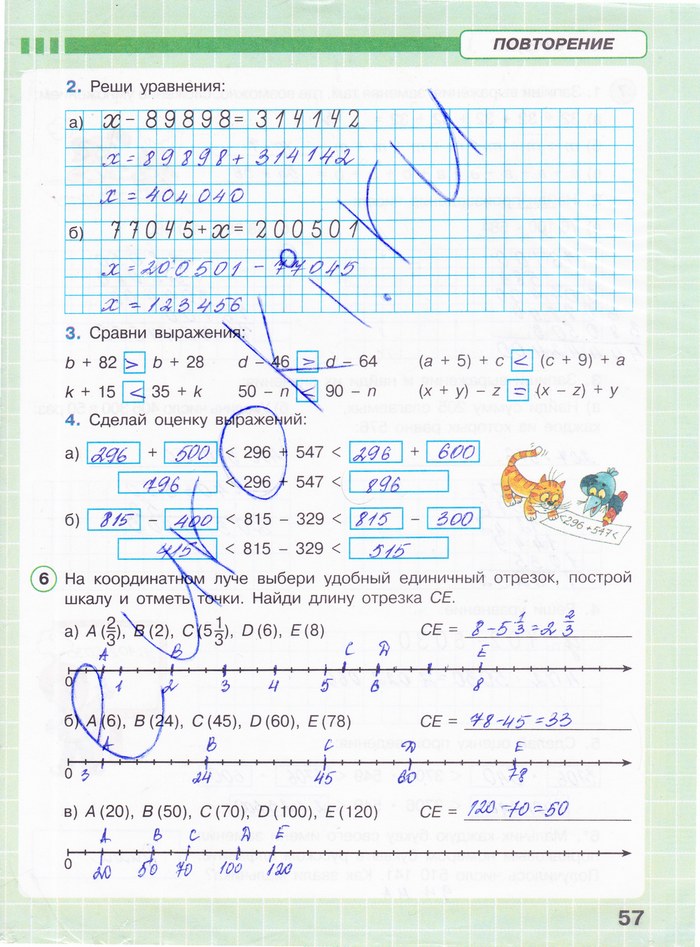 ПОВТОРЕНИЕ
2. Реши уравнения:
а) x – 89898 = 314142
x = 89898 + 314142
x = 404040
б) 77045 + x = 200501
x = 200501 – 77045
x = 123456
3. Сравни выражения:
b + 82 > b + 28 d – 46 > d – 64 (a + 5) + c < (c + 9) + a
k + 15 < 35 + k 50 – n < 90 – n (x + y) – z = (x – z) + y
4. Сделай оценку выражений:
а) 296 + 500 < 296 + 547 < 296 + 600
796 < 296 + 547 < 896
296+547<
б) 815 – 400 < 815 – 329 < 815 – 300
415 < 815 – 329 < 515
6 На координатном луче выбери удобный единичный отрезок, построй
шкалу и отметь точки. Найди длину отрезка CE.
а) A(2/3), B(2), C(5 1/3), D(6), E(8) CE = 8 – 5 1/3 = 2 2/3
A B C D E
0 1 2 3 4 5 6 8
б) A(6), B(24), C(45), D(60), E(78) CE = 78 – 45 = 33
A B C D E
0 3 24 45 60 78
в) A(20), B(50), C(70), D(100), E(120) CE = 120 – 70 = 50
A B C D E
0 20 50 70 100 120
57